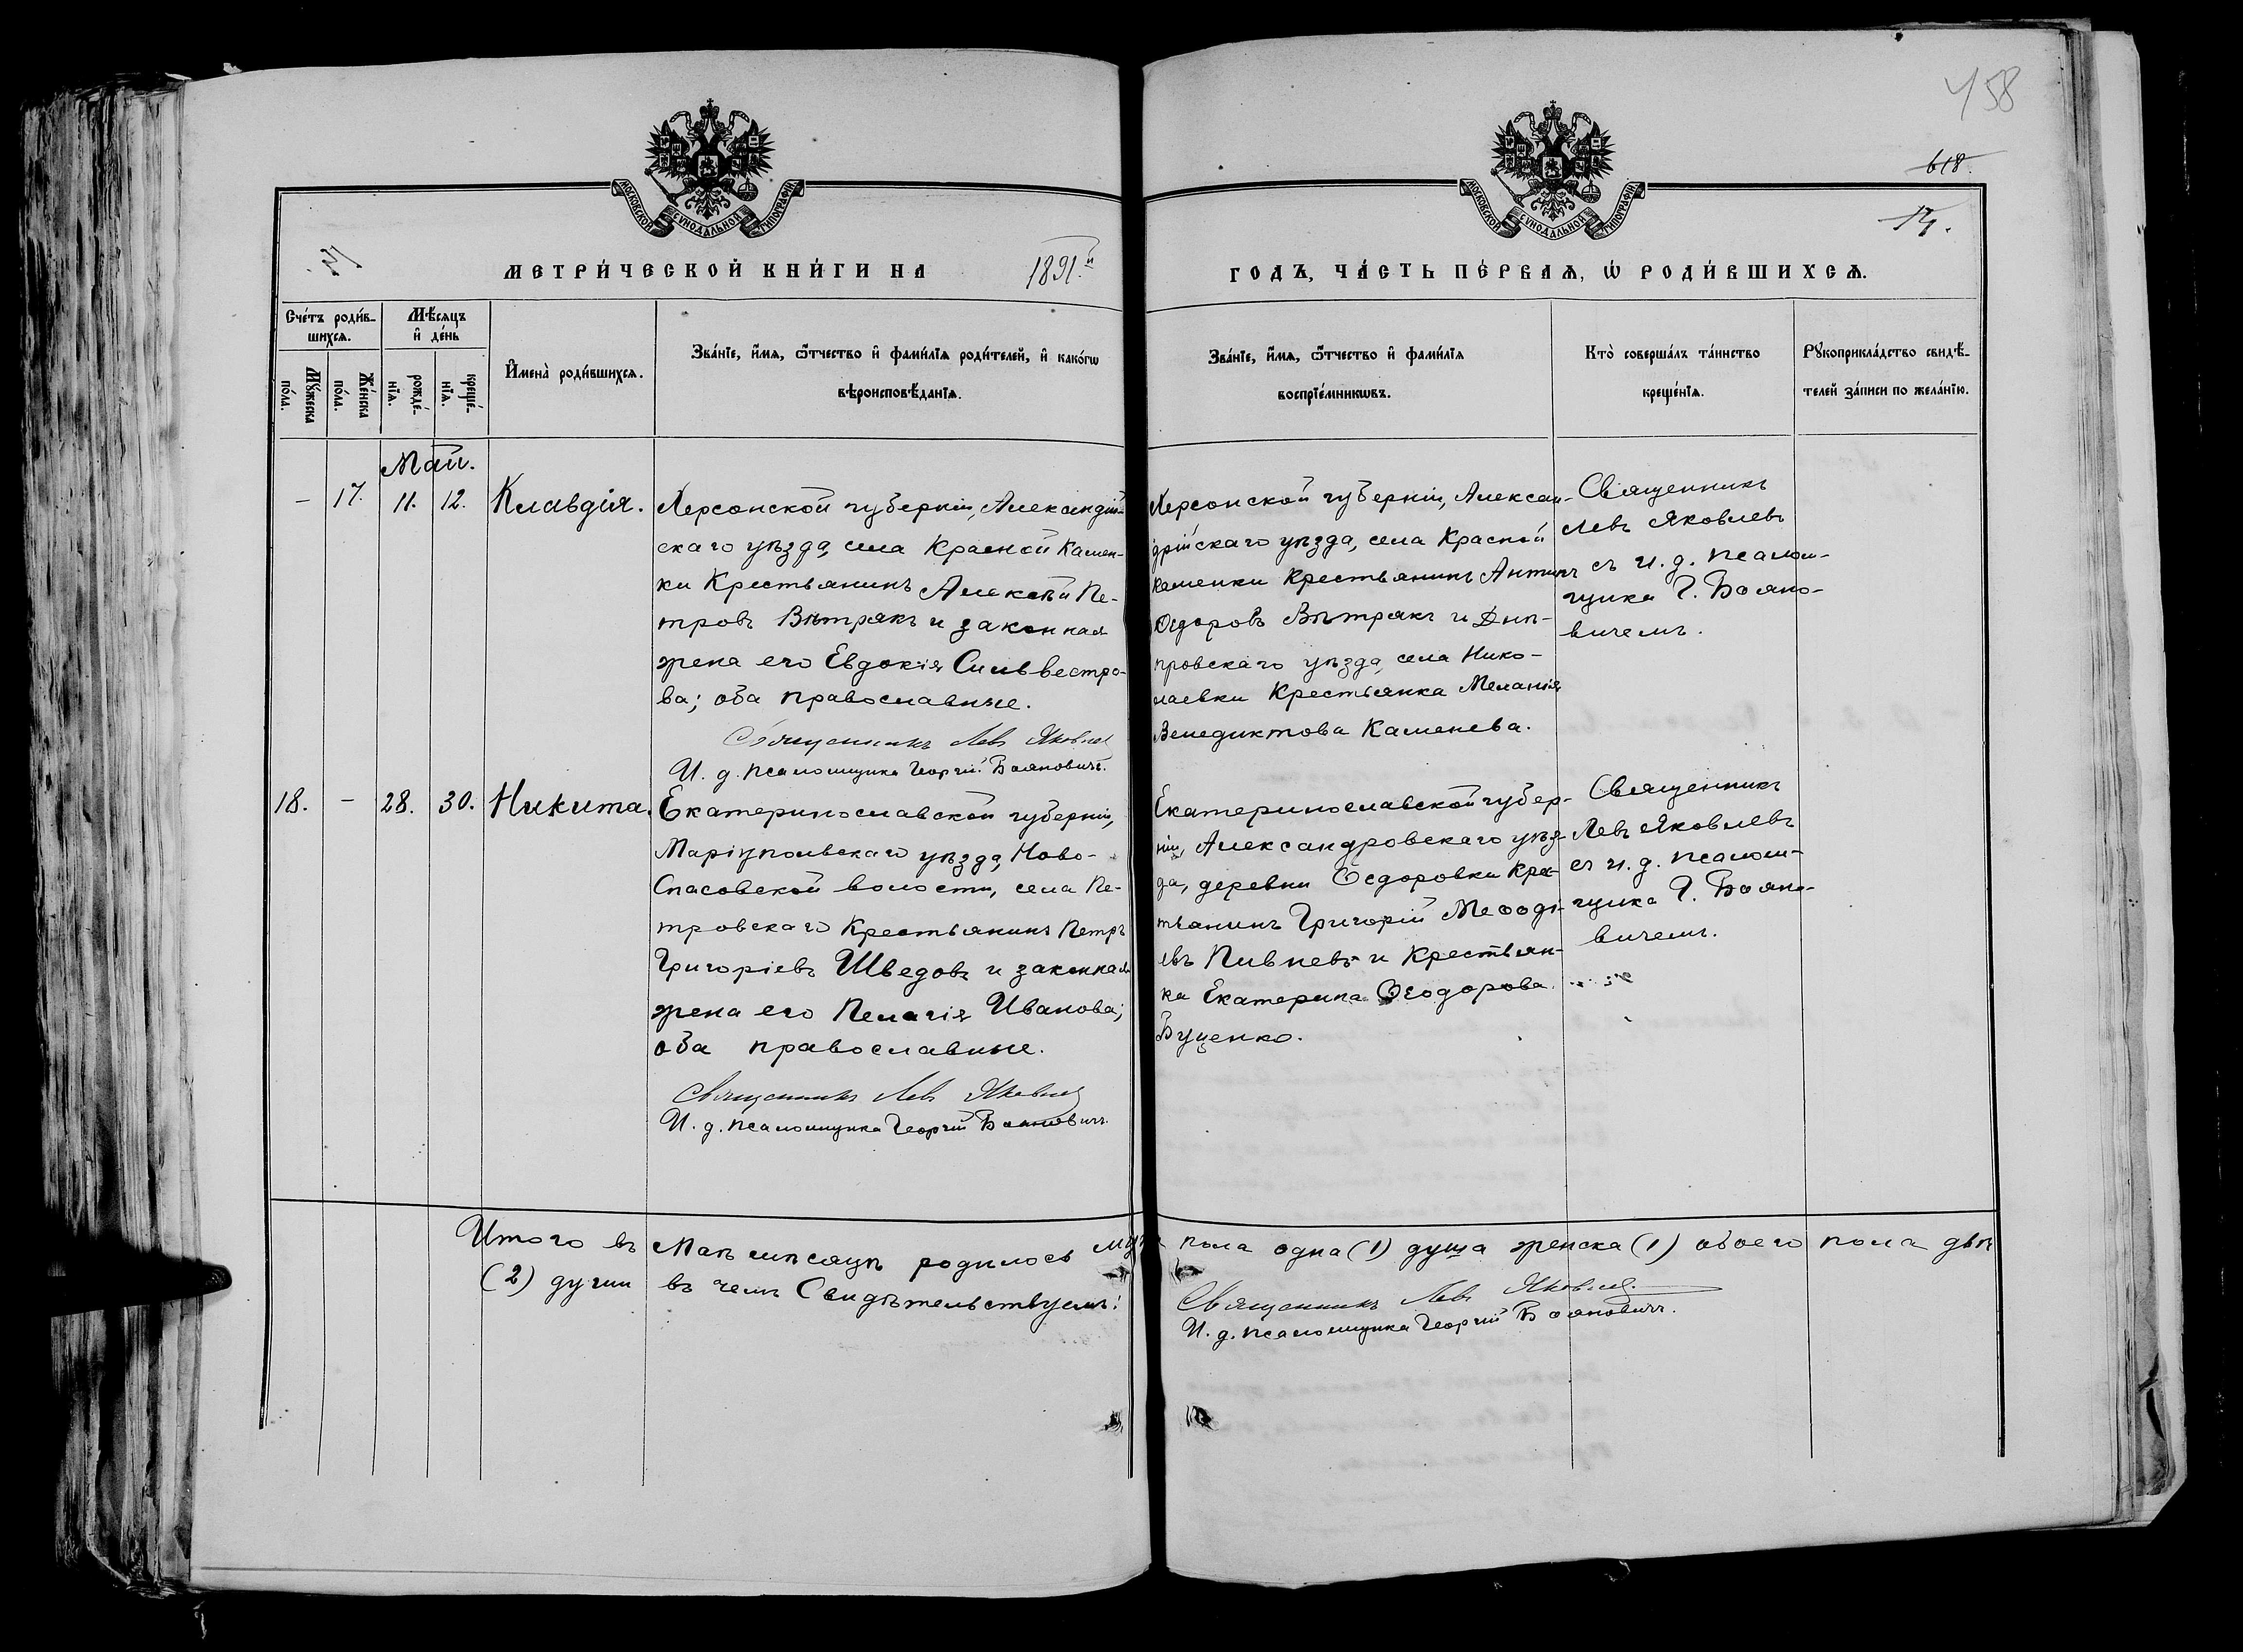 458
618.
14.
МОСКОВСКОЙ СѴНОДАЛЬНОЙ ТИПОГРАФІИ
МОСКОВСКОЙ СѴНОДАЛЬНОЙ ТИПОГРАФІИ
МЕТРИ́ЧЕСКОЙ КНИ́ГИ НА 1891.й ГОДЪ, ЧА́СТЬ ПЕ́РВАѦ, Ѡ҆ РОДИ́ВШИХСѦ.
Сче́тъ роди́в-
шихсѧ.
Мꙋ́жеска по́ла.
Же́нска по́ла.
Мѣ́сѧцъ
и҆ де́нь
рожде́-
нїѧ.
креще́-
нїѧ.
И҆мена̀ роди́вшихсѧ.
Зва́нїе, и҆́мѧ, ѻ҆́тчество и҆ фами́лїѧ роди́телей, и҆ како́гѡ
вѣроисповѣ́данїѧ.
Зва́нїе, и҆́мѧ, ѻ҆́тчество и҆ фами́лїѧ
воспрїе́мникѡвъ.
Кто̀ соверша́лъ та́инство
креще́нїѧ.
Рꙋкоприкла́дство свидѣ́-
телей за́писи по жела́нїю.
Май.
– 17. 11. 12. Клавдія.
Херсонской губерніи, Александрій-
скаго уѣзда, села Красной Камен-
ки Крестьянинъ Алексѣй Пе-
тровъ Вѣтрякъ и законная
жена его Евдокія Сильвестро-
ва; оба православные.
Священникъ Левъ Яковлев
И. д. псаломщика Георгій Бояновичъ.
Херсонской губерніи, Алексан-
дрійскаго уѣзда, села Красной
Каменки Крестьянинъ Антипъ
Ѳедоровъ Вѣтрякъ и Днѣ-
провскаго уѣзда, села Нико-
лаевки Крестьянка Меланія
Венедиктова Каменева.
Священникъ
Левъ Яковлевъ
съ и. д. псалом-
щика Г. Бояно-
вичемъ.
18. – 28. 30. Никита.
Екатеринославской губерніи,
Маріупольскаго уѣзда, Ново-
Спасовской волости, села Пе-
тровскаго Крестьянинъ Петръ
Григоріевъ Шведовъ и законная
жена его Пелагія Иванова;
оба православные.
Священникъ Левъ Яковлев
И. д. псаломщика Георгій Бояновичъ.
Екатеринославской губер-
ніи, Александровскаго уѣз-
да, деревни Ѳедоровки Крес-
тьянинъ Григорій Меѳоді-
евъ Пивневъ и Крестьян-
ка Екатерина Ѳеодорова
Буценко.
Священникъ
Левъ Яковлевъ
съ и. д. псалом-
щика Г. Бояно-
вичемъ.
Итого въ Маѣ мѣсяцѣ родилось муж. пола одна (1) душа женска (1) обоего пола двѣ
(2) души въ чемъ Свидѣтельствуемъ:
Священникъ Левъ Яковлев.
И. д. псаломщика Георгій Бояновичъ.